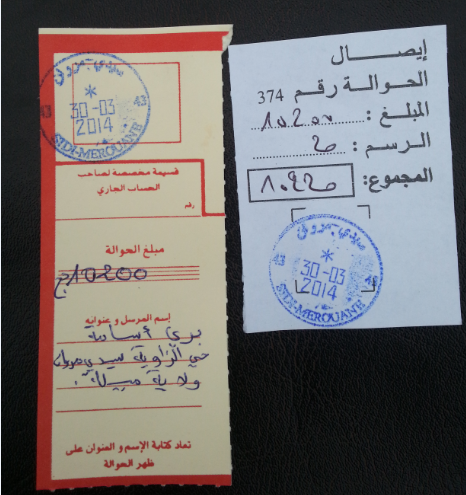 سيدي مروان
30-03
2014
43
43
SIDI-MEROUANE
قسيمة مخصصة لصاحب
الحساب الجاري
رقم
مبلغ الحوالة
10200 دج
إسم المرسل و عنوانه
بري أسامة
حي الزاوية سيدي مروان
ولاية ميلة.
تعاد كتابة الإسم و العنوان على
ظهر الحوالة
إيصال
الحوالة رقم 374
المبلغ : 10200
الرسم :
المجموع:
سيدي مروان
43
43
30-03
2014
SIDI-MEROUANE